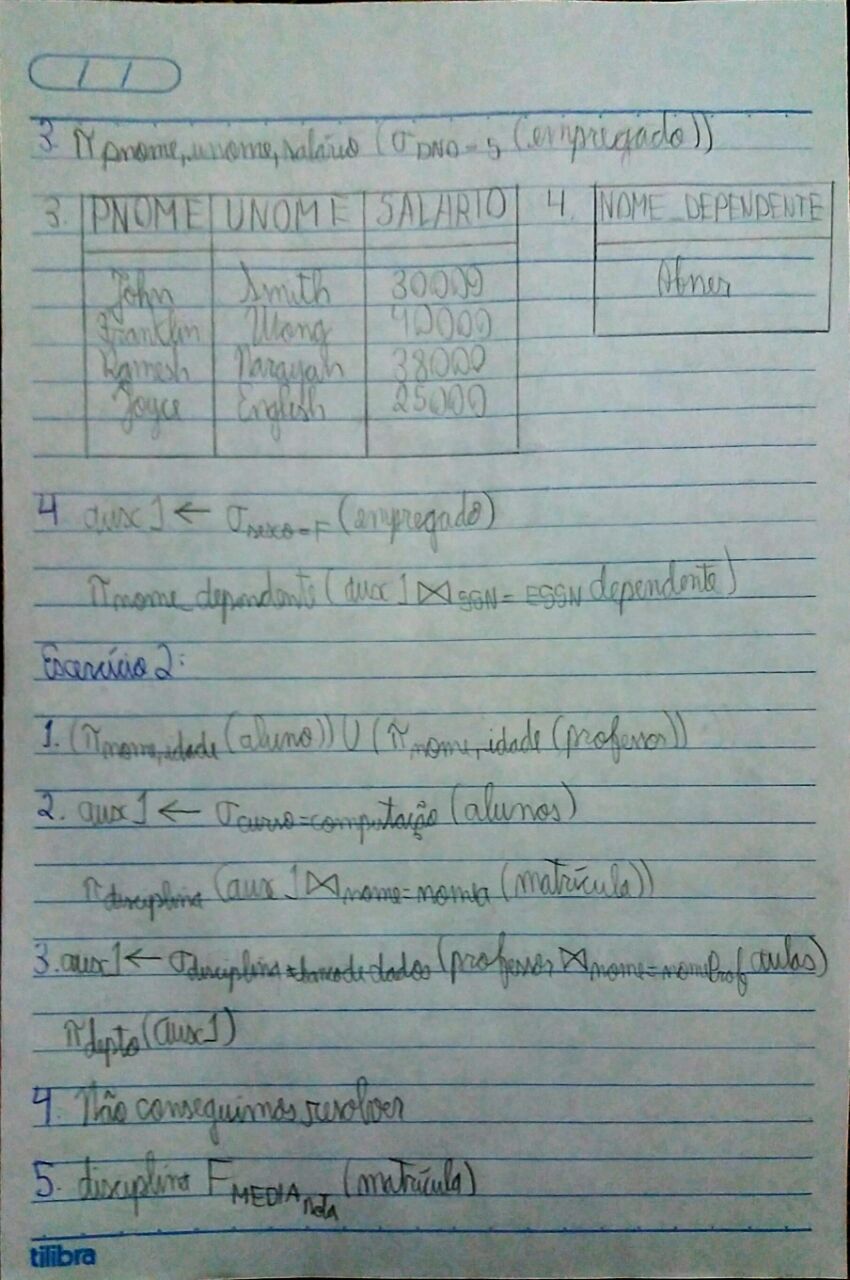 / /
3 π pnome, unome, salário (σ DNO = 5 (empregado))
3. PNOME UNOME SALARIO 4. NOME_DEPENDENTE
John Smith 30000 Abner
Franklin Wong 40000
Ramesh Narayah 38000
Joyce English 25000
4 aux1 ← σ sexo = F (empregado)
π nome_dependente (aux1 ⋈ SSN = ESSN dependente)
Exercício 2:
1. (π nome, idade (aluno)) U (π nome, idade (professor))
2. aux1 ← σ curso = computação (alunos)
π disciplina (aux1 ⋈ nome = nomea (matrícula))
3. aux1 ← σ disciplina = banco de dados (professor ⋈ nome = nomeProf aulas)
π depto (aux1)
4. Não conseguimos resolver
5. disciplina F MEDIA nota (matrícula)
tilibra